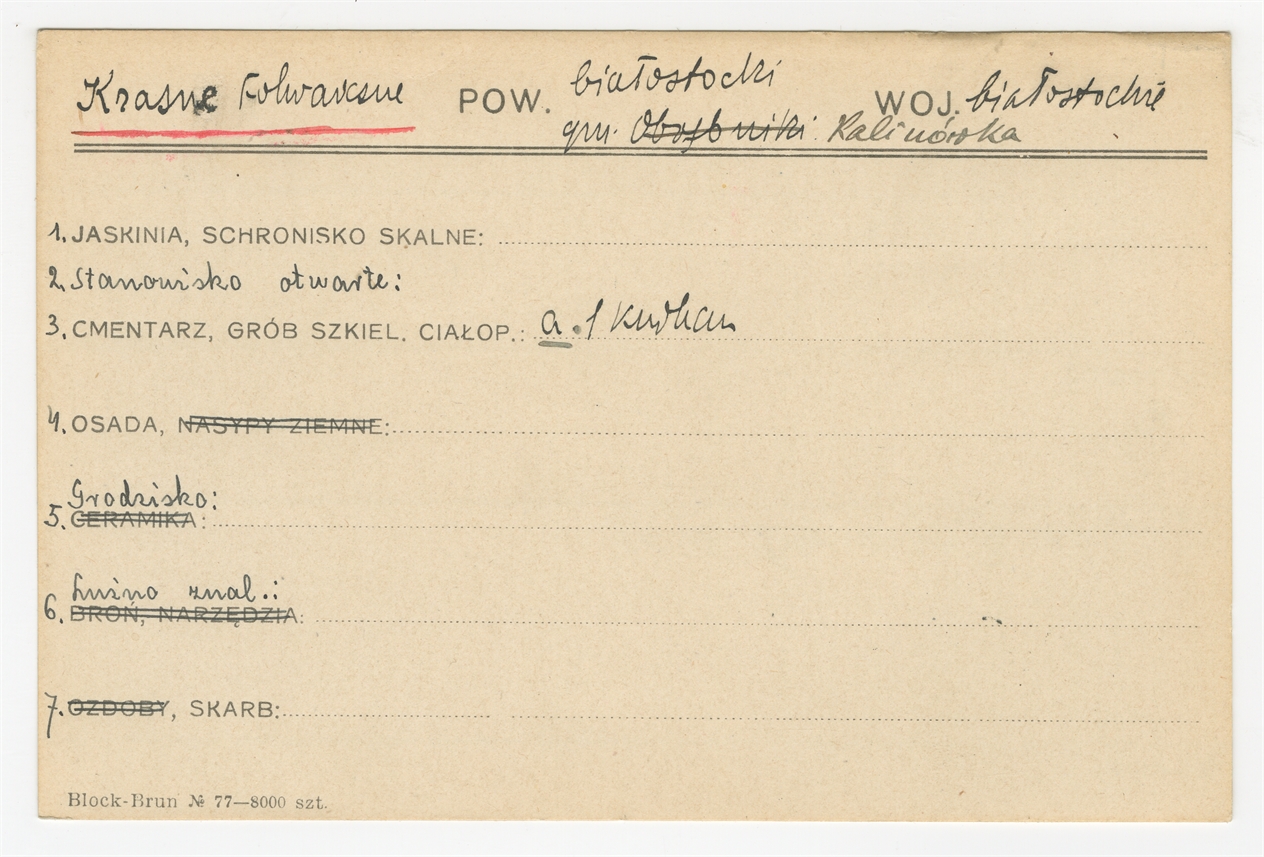 Krasne Folwarczne POW. białostocki WOJ. białostockie
gm. Obrębniki Kalinówka
1. JASKINIA, SCHRONISKO SKALNE:
2. Stanowisko otwarte:
3. CMENTARZ, GRÓB SZKIEL. CIAŁOP.: a. 1 kurhan
4. OSADA, NASYPY ZIEMNE:
Grodzisko:
5. CERAMIKA:
Luźno znal.:
6. BROŃ, NARZĘDZIA:
7. OZDOBY, SKARB:
Block-Brun № 77—8000 szt.